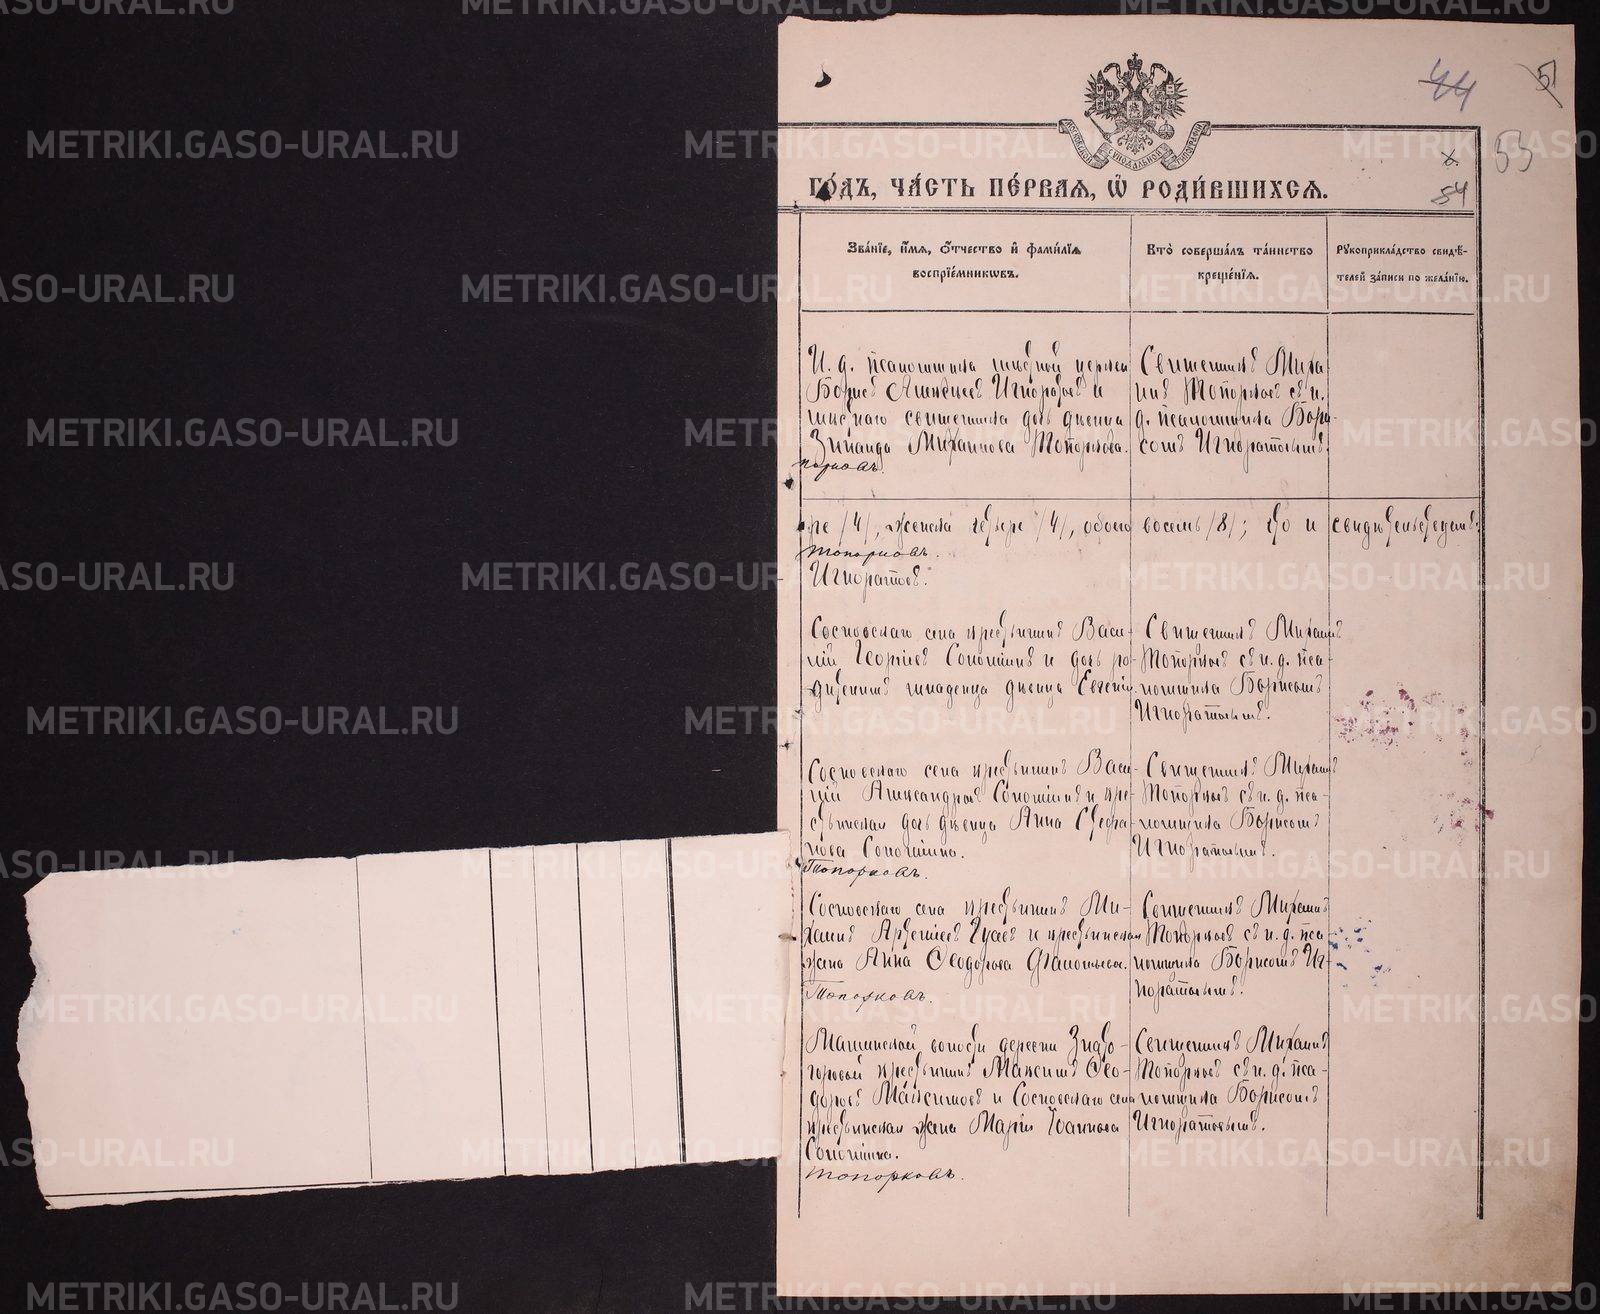 44
51
53
54
МОСКОВСКОЙ СѴНОДАЛЬНОЙ ТИПОГРАФІИ
ГО́ДЪ, ЧА́СТЬ ПЕ́РВАѦ, Ѡ҆ РОДИ́ВШИХСѦ.
Зва́нїе, и҆́мѧ, ѻ҆́тчество и҆ фами́лїѧ воспрїе́мникѡвъ.
Кто̀ соверша́лъ та́инство креще́нїѧ.
Рꙋкоприкла́дство свидѣ́телей за́писи по жела́нїю.
И. д. псаломщика мѣстной церкви
Борисъ Алексѣевъ Игноратовъ и
мѣстнаго священника дочь дѣвица
Зинаида Михаилова Топоркова.
Священникъ Миха-
илъ Топорковъ съ и.
д. псаломщика Бори-
сомъ Игноратовымъ.
ре /4/, женска четыре /4/, обоего восемь /8/; что и свидѣтельствуемъ:
Топорковъ.
Игноратовъ.
Сосновскаго села крестьянинъ Васи-
лій Георгіевъ Солонинъ и дочь ро-
дителямъ младенца дѣвица Евгенія.
Священникъ Михаилъ
Топорковъ съ и. д. пса-
ломщика Борисомъ
Игноратовымъ.
Сосновскаго села крестьянинъ Васи-
лій Александровъ Солонинъ и кре-
стьянская дочь дѣвица Анна Стефа-
нова Солонина.
Топорковъ.
Священникъ Михаилъ
Топорковъ съ и. д. пса-
ломщика Борисомъ
Игноратовымъ.
Сосновскаго села крестьянинъ Ми-
хаилъ Артеміевъ Гусевъ и крестьянская
жена Анна Ѳеодорова
Топорковъ.
Священникъ Михаилъ
Топорковъ съ и. д. пса-
ломщика Борисомъ Иг-
норатовымъ.
волости деревни
крестьянинъ Максимъ Ѳео-
доровъ Максимовъ и Сосновскаго села
крестьянская жена Марія Іоаннова
Солонина.
Топорковъ.
Священникъ Михаилъ
Топорковъ съ и. д. пса-
ломщика Борисомъ
Игноратовымъ.
METRIKI.GASO-URAL.RU